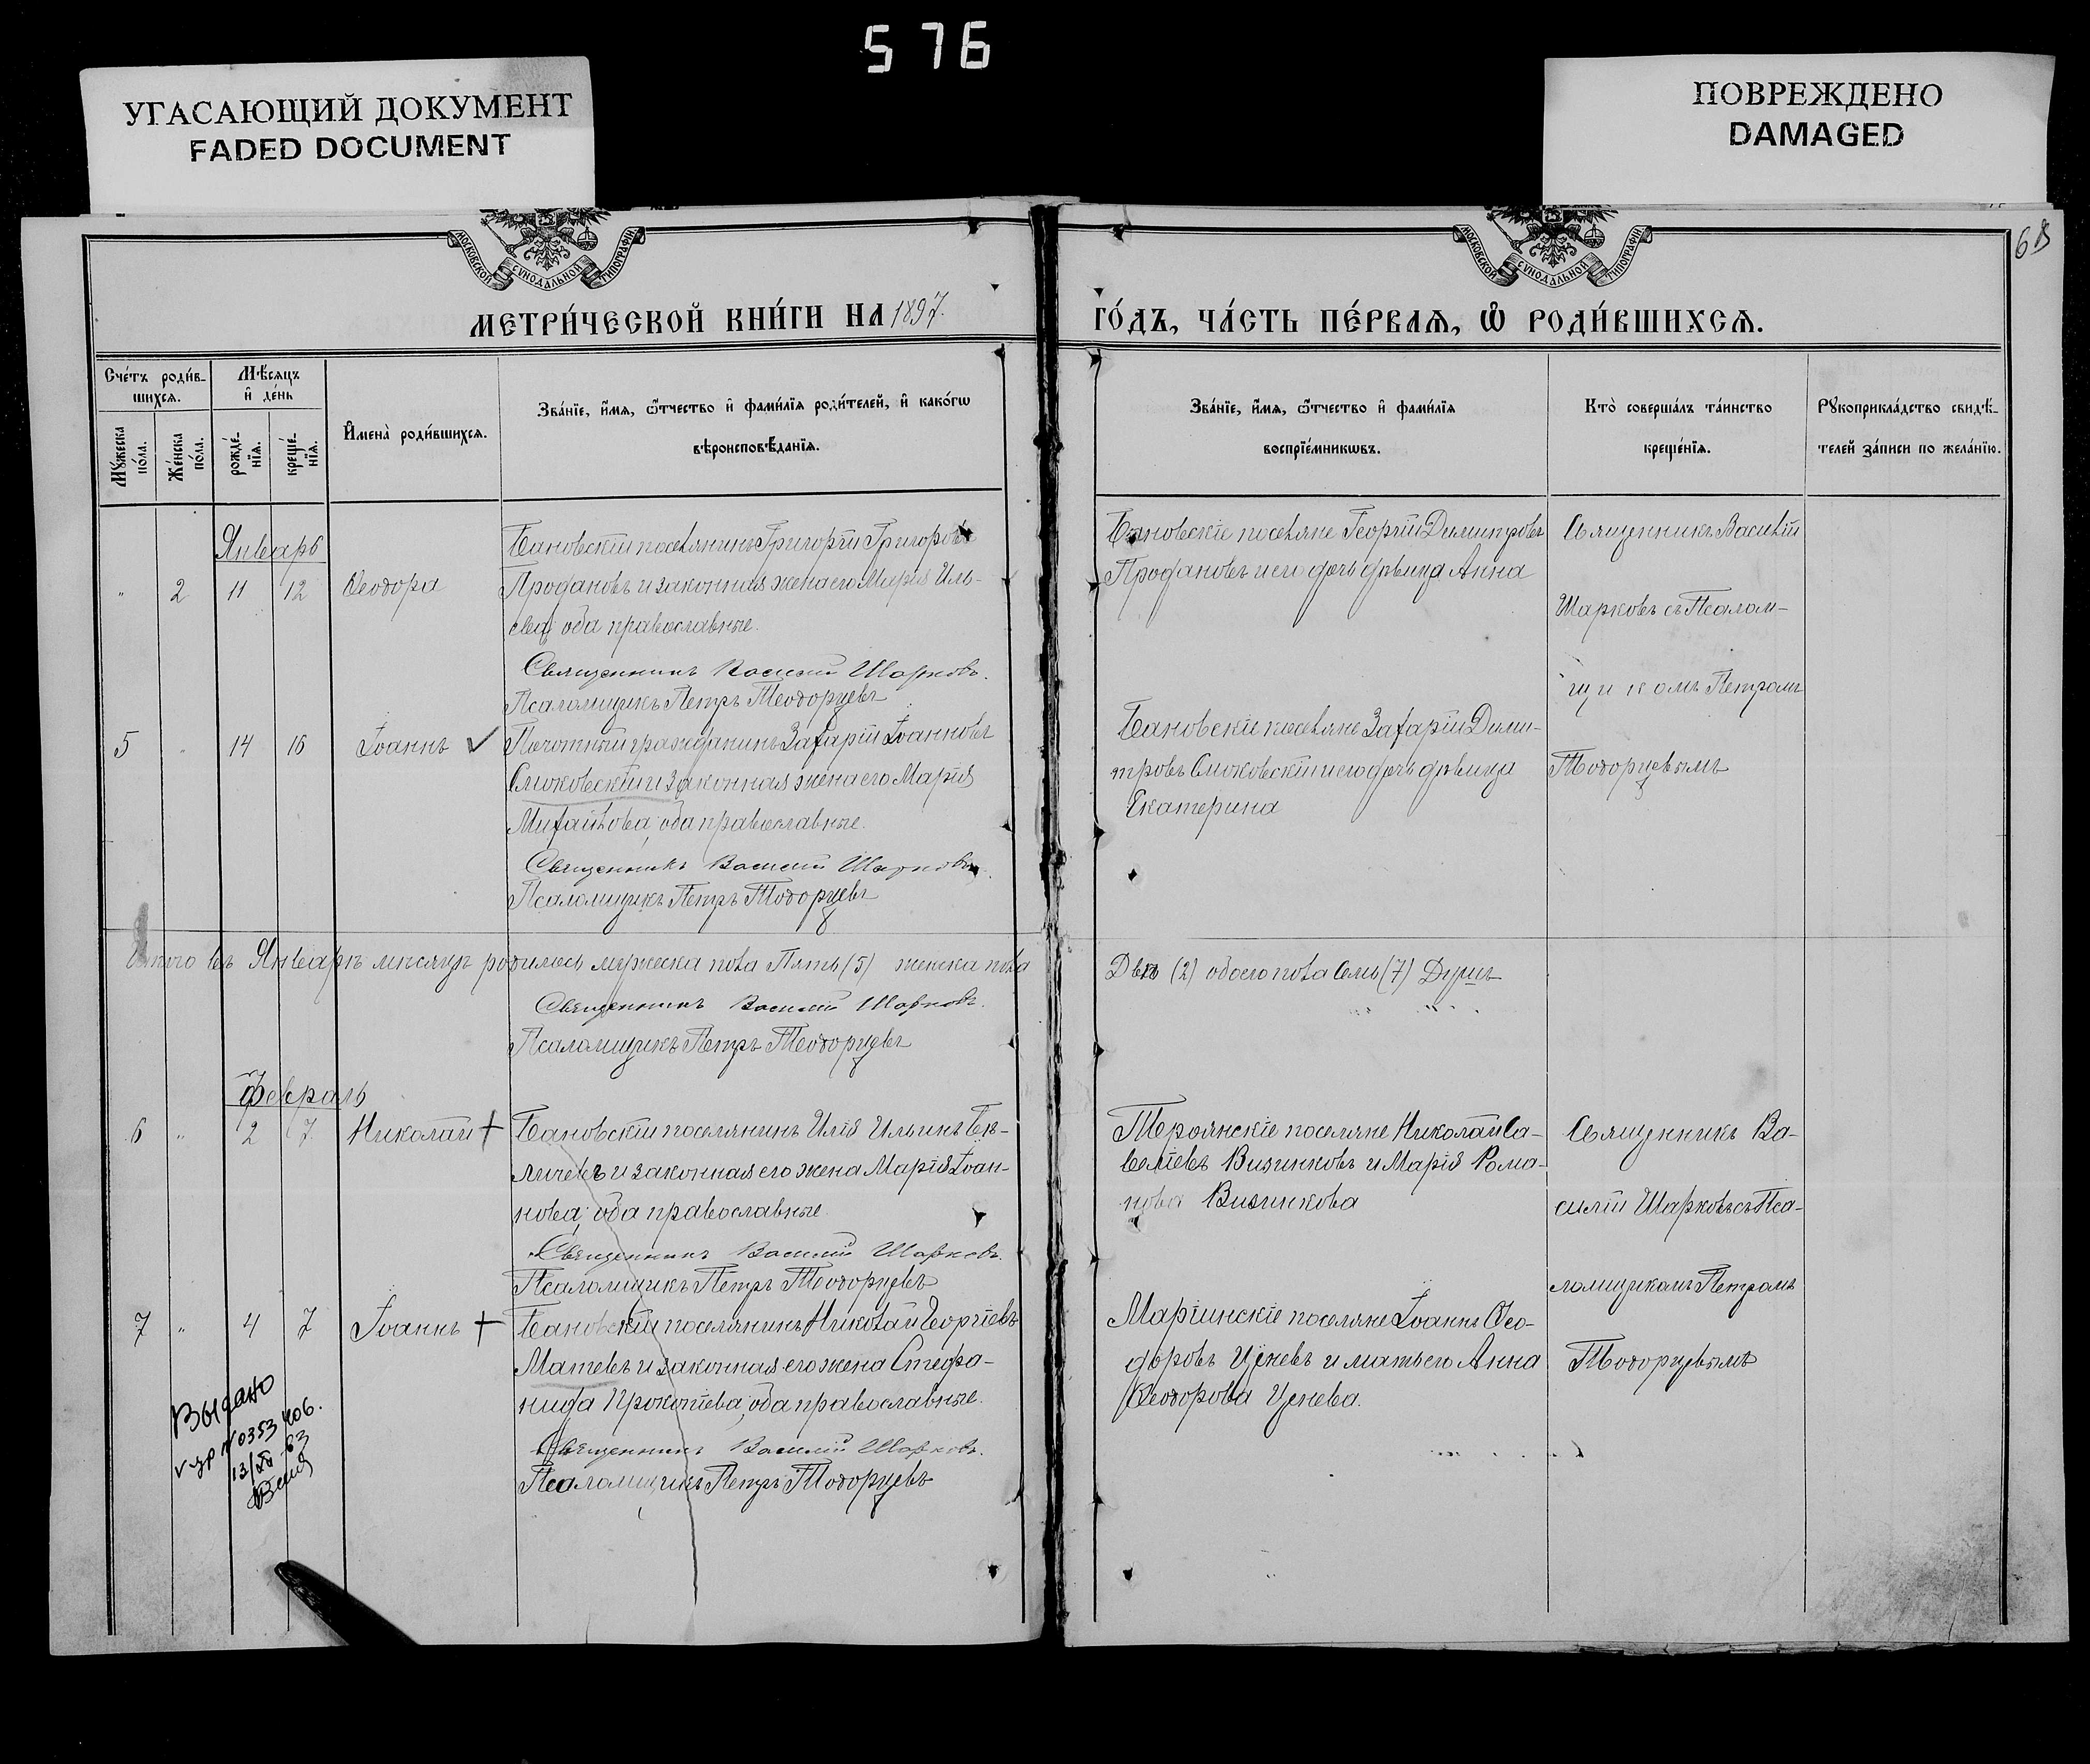 576
УГАСАЮЩИЙ ДОКУМЕНТ
FADED DOCUMENT
ПОВРЕЖДЕНО
DAMAGED
МОСКОВСКОЙ СѴНОДАЛЬНОЙ ТИПОГРАФІИ
МОСКОВСКОЙ СѴНОДАЛЬНОЙ ТИПОГРАФІИ
МЕТРИ́ЧЕСКОЙ КНИ́ГИ НА 1897.
ГО́ДЪ, ЧА́СТЬ ПЕ́РВАѦ, Ѽ РОДИ́ВШИХСѦ.
Сче́тъ роди́в-
шихсѧ.
Мꙋ́жеска
по́ла.
Же́нска
по́ла.
Мѣ́сѧцъ
и҆ де́нь
рожде́-
нїѧ.
креще́-
нїѧ.
И҆мена̀ роди́вшихсѧ.
Зва́нїе, и҆́мѧ, ѻ҆́тчество и҆ фами́лїѧ роди́телей, и҆ како́гѡ
вѣроисповѣ́данїѧ.
Зва́нїе, и҆́мѧ, ѻ҆́тчество и҆ фами́лїѧ
воспрїе́мникѡвъ.
Кто̀ соверша́лъ та́инство
креще́нїѧ.
Рꙋкоприкла́дство свидѣ́-
телей за́писи по жела́нїю.
Январь
" 2 11 12 Ѳеодора
Бановскій поселянинъ Григорій Григоровъ
Продановъ и законная жена его Марія Иль-
ева, оба православные.
Священникъ Василій Шарковъ.
Псаломщикъ Петръ Теодорцевъ
Бановскіе поселяне Георгій Димитровъ
Продановъ и его дочь дѣвица Анна
Священникъ Василій
Шарковъ съ Псалом-
щикомъ Петромъ
Тодорцевымъ
5 " 14 16 Іоаннъ ✓
Почотный гражданинъ Захарій Іоанновъ
Смоковскій и законная жена его Марія
Михайлова, оба православные.
Священникъ Василій Шарковъ.
Псаломщикъ Петръ Тодорцевъ
Бановскіе поселяне Захарій Дими-
тровъ Смоковскій и его дочь дѣвица
Екатерина
Итого въ Январѣ мѣсяцѣ родилось мужеска пола Пять (5) женска пола
Двѣ (2) обоего пола Семь (7) Душъ
Священникъ Василій Шарковъ.
Псаломщикъ Петръ Теодорцевъ
Февраль
6 " 2 7 Николай +
Бановскій поселянинъ Илія Ильинъ Бѣ-
личевъ и законная его жена Марія Іоан-
нова, оба православные
Священникъ Василій Шарковъ.
Псаломщикъ Петръ Теодорцевъ
Терояньскіе поселяне Николай Са-
веліевъ Визинковъ и Марія Рома-
нова Визинкова
Священникъ Ва-
силій Шарковъ съ Пса-
ломщикомъ Петромъ
Тодорцевымъ
7 " 4 7 Іоаннъ +
Бановскій поселянинъ Николай Георгіевъ
Матевъ и законная его жена Стефа-
нида Прокопіева, оба православные.
Священникъ Василій Шарковъ.
Псаломщикъ Петръ Тодорцевъ
Маріинскіе поселяне Іоаннъ Ѳео-
доровъ Ценевъ и мать его Анна
Ѳеодорова Ценева.
Выдано